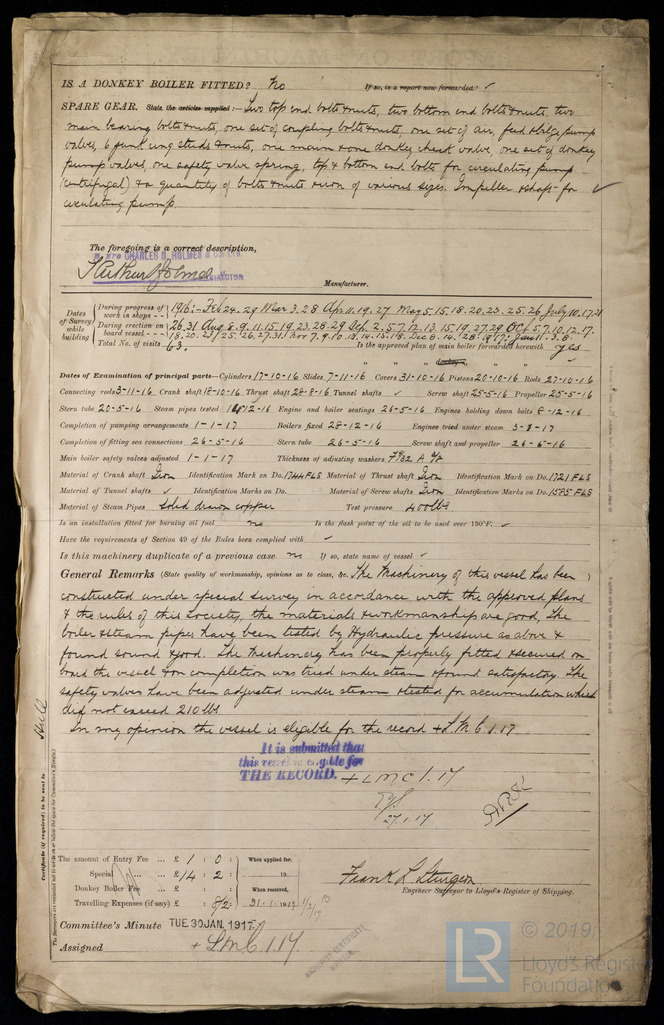 IS A DONKEY BOILER FITTED? No If so, is a report now forwarded? ✓
SPARE GEAR. State the articles supplied:— Two top end bolts & nuts, two bottom end bolts & nuts, two
main bearing bolts & nuts, one set of coupling bolts & nuts, one set of air, feed & bilge pump
valves, 6 junk ring studs & nuts, one main & one donkey check valve, one set of donkey
pump valves, one safety valve spring, top & bottom end bolts for circulating pump
(centrifugal) & a quantity of bolts & nuts & iron of various sizes. Impeller & shaft for ✓
circulating pump.
The foregoing is a correct description,
CHARLES D. HOLMES & CO. LTD.
Arthur Holmes DIRECTOR
Manufacturer.
Dates of Survey while building
During progress of work in shops - - 1916:- Feb 24. 29 Mar 3. 28 Apr 11. 19. 27 May 5. 15. 18. 20. 23. 25. 26 July 10. 17. 21
During erection on board vessel - - - 26. 31 Aug 8. 9. 11. 15. 19. 23. 28. 29 Sep 2. 5. 7. 12. 13. 15. 19. 27. 29 Oct 5. 7. 10. 12. 17.
18. 20. 23. 25. 26. 27. 31. Nov 7. 9. 10. 13. 14. 15. 18. Dec 8. 14. 28. 1917:- Jan 1. 3. 8.
Total No. of visits 63. Is the approved plan of main boiler forwarded herewith yes
" " " donkey " " "
Dates of Examination of principal parts—Cylinders 17-10-16 Slides 7-11-16 Covers 31-10-16 Pistons 20-10-16 Rods 27-10-16
Connecting rods 3-11-16 Crank shaft 18-10-16 Thrust shaft 28-8-16 Tunnel shafts ✓ Screw shaft 25-5-16 Propeller 25-5-16
Stern tube 20-5-16 Steam pipes tested 12-16 Engine and boiler seatings 26-5-16 Engines holding down bolts 8-12-16
Completion of pumping arrangements 1-1-17 Boilers fixed 28-12-16 Engines tried under steam 3-8-17
Completion of fitting sea connections 26-5-16 Stern tube 26-5-16 Screw shaft and propeller 26-5-16
Main boiler safety valves adjusted 1-1-17 Thickness of adjusting washers
Material of Crank shaft Iron Identification Mark on Do. 1744 FLS Material of Thrust shaft Iron Identification Mark on Do. 1721 FLS
Material of Tunnel shafts ✓ Identification Marks on Do. Material of Screw shafts Iron Identification Marks on Do. 1585 FLS
Material of Steam Pipes Solid drawn copper Test pressure 400 lbs
Is an installation fitted for burning oil fuel no Is the flash point of the oil to be used over 150°F. ✓
Have the requirements of Section 49 of the Rules been complied with ✓
Is this machinery duplicate of a previous case no If so, state name of vessel ✓
General Remarks (State quality of workmanship, opinions as to class, &c. The Machinery of this vessel has been )
constructed under special survey in accordance with the approved plans
& the rules of this Society, the materials & workmanship are good, The
boiler & steam pipes have been tested by Hydraulic pressure as above &
found sound & good. The Machinery has been properly fitted & secured on
board the vessel & on completion was tried under steam & found satisfactory. The
safety valves have been adjusted under steam & tested for accumulation which
did not exceed 210 lbs.
In my opinion the vessel is eligible for the record + L.M.C. 1.17
It is submitted that
this vessel is eligible for
THE RECORD. + LMC 1.17
27.1.17
Hull
Certificate (if required) to be sent to
The amount of Entry Fee ... £ 1 : 0 : When applied for,
Special ... £ 14 : 2 : 19
Donkey Boiler Fee ... £ : : When received,
Travelling Expenses (if any) £ : 8/2 : 31-1-1917 1/2/17
Frank L. Sturgeon
Engineer Surveyor to Lloyd's Register of Shipping.
Committee's Minute TUE. 30 JAN. 1917
Assigned + L.M.C. 1.17
MACHINERY CERTIFICATE
WRITTEN
LR
© 2019
Lloyd's Register
Foundation